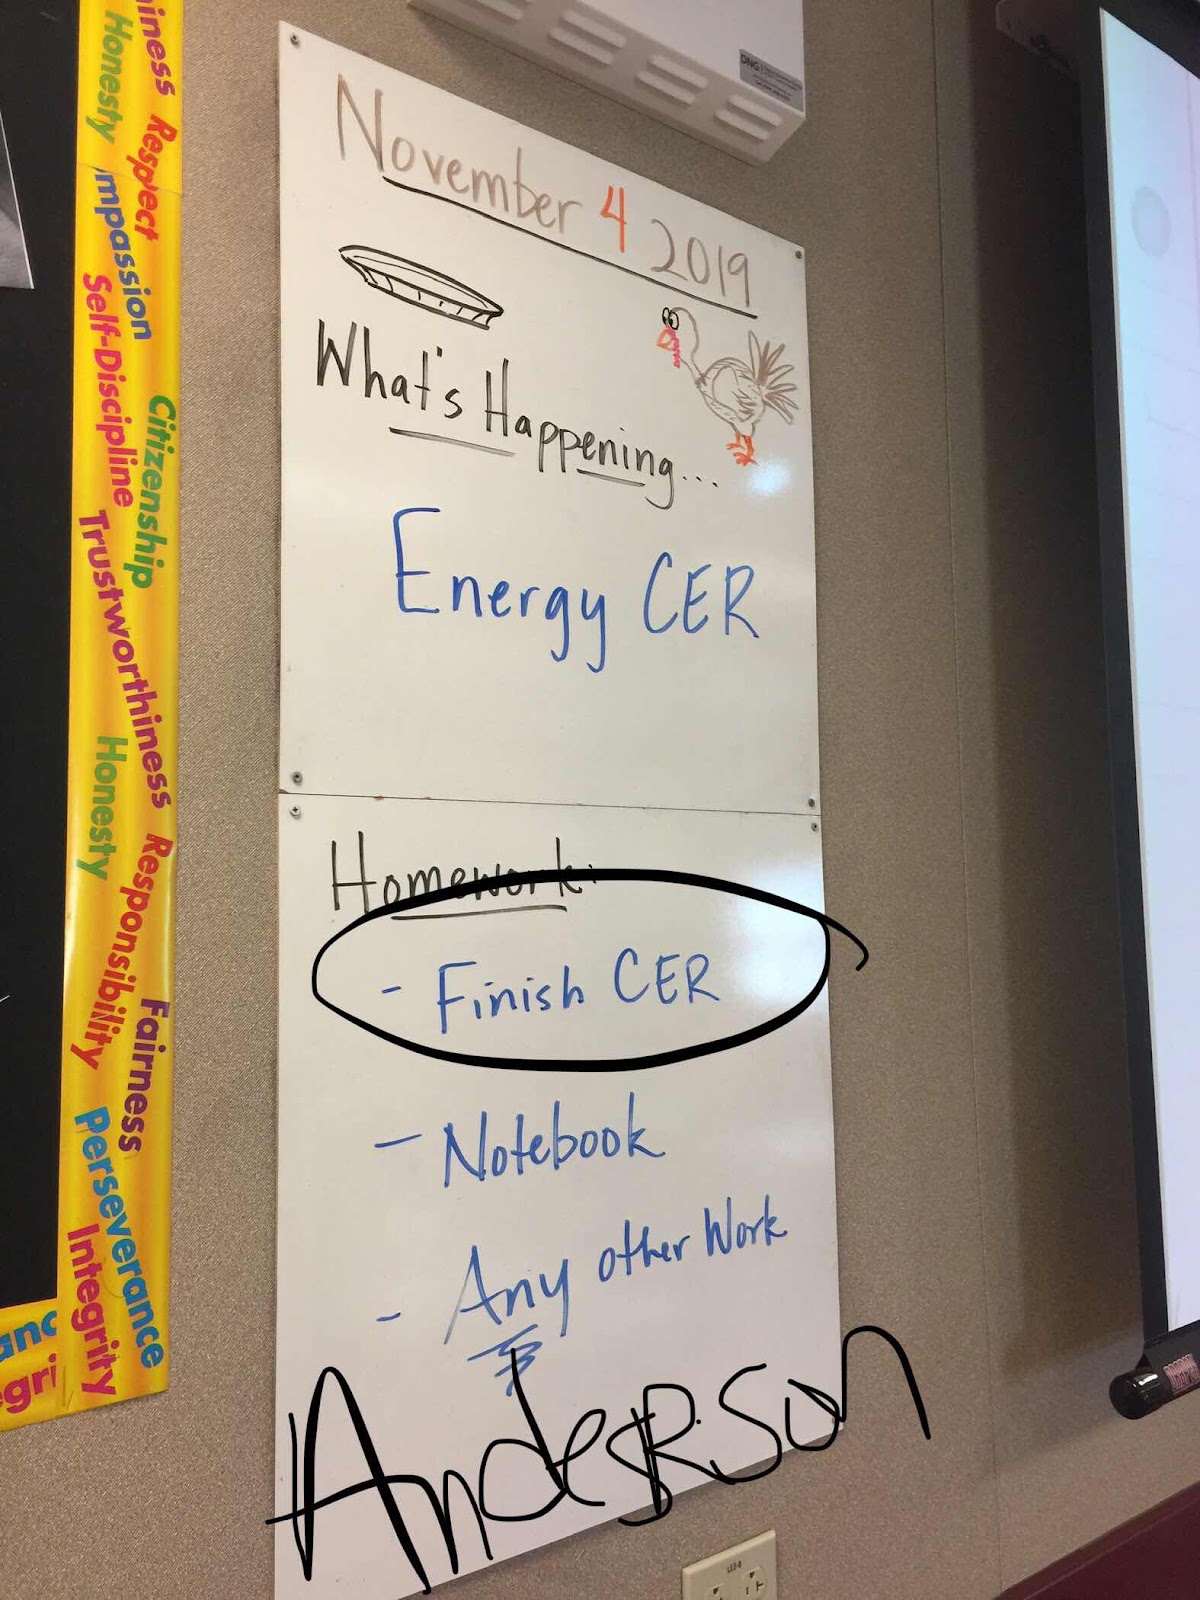 November 4 2019
What's Happening...
Energy CER
Homework:
- Finish CER
- Notebook
- Any other Work
Anderson
iness Respect
Honesty
mpassion
Self-Discipline
Citizenship
Trustworthiness
Honesty
Responsibility
Fairness
Perseverance
Integrity
anc
egri
DNG